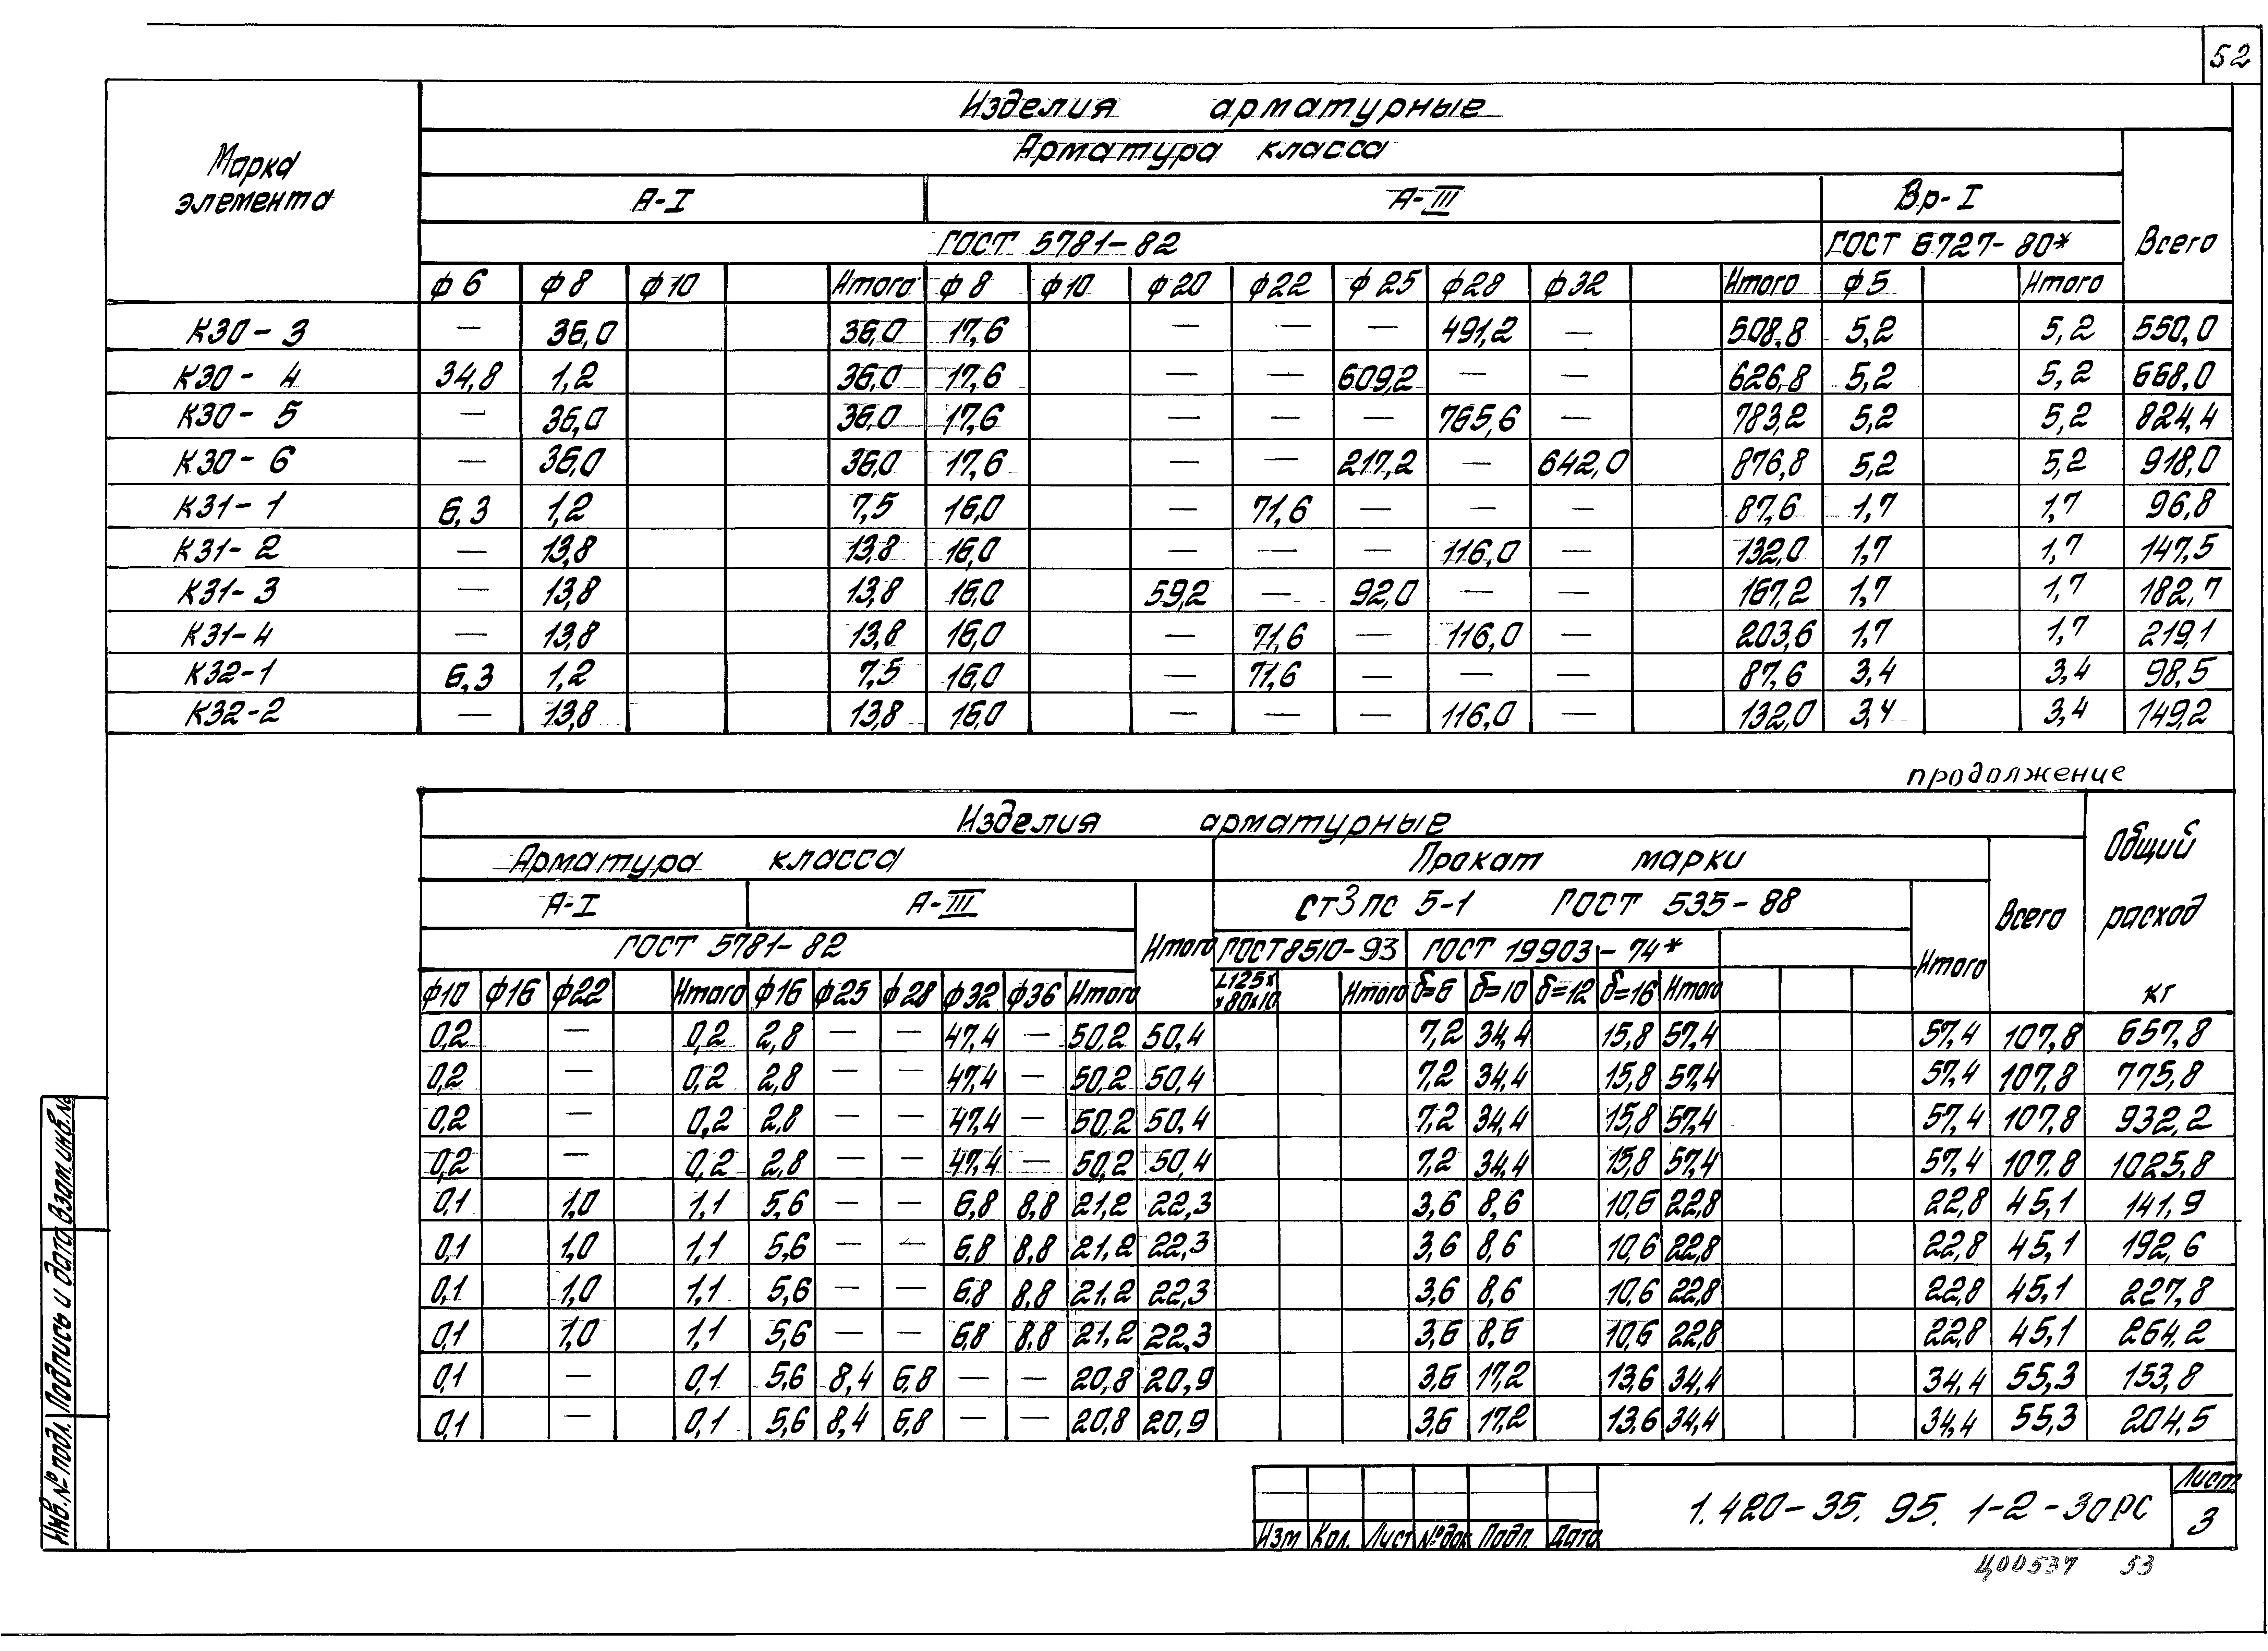 52
Изделия арматурные
Марка элемента
Арматура класса
А-I А-III Вр-I
ГОСТ 5781-82 ГОСТ 6727-80* Всего
ф6 ф8 ф10 Итого ф8 ф10 ф20 ф22 ф25 ф28 ф32 Итого ф5 Итого
К30-3 — 36,0 36,0 17,6 — — — 491,2 — 508,8 5,2 5,2 550,0
К30-4 34,8 1,2 36,0 17,6 — — 609,2 — — 626,8 5,2 5,2 668,0
К30-5 — 36,0 36,0 17,6 — — — 765,6 — 783,2 5,2 5,2 824,4
К30-6 — 36,0 36,0 17,6 — — 217,2 — 642,0 876,8 5,2 5,2 918,0
К31-1 6,3 1,2 7,5 16,0 — 71,6 — — — 87,6 1,7 1,7 96,8
К31-2 — 13,8 13,8 16,0 — — — 116,0 — 132,0 1,7 1,7 147,5
К31-3 — 13,8 13,8 16,0 59,2 — 92,0 — — 167,2 1,7 1,7 182,7
К31-4 — 13,8 13,8 16,0 — 71,6 — 116,0 — 203,6 1,7 1,7 219,1
К32-1 6,3 1,2 7,5 16,0 — 71,6 — — — 87,6 3,4 3,4 98,5
К32-2 — 13,8 13,8 16,0 — — — 116,0 — 132,0 3,4 3,4 149,2
продолжение
Изделия арматурные Общий расход кг
Арматура класса Прокат марки
А-I А-III Итого Ст3пс 5-1 ГОСТ 535-88 Итого Всего
ГОСТ 5781-82 ГОСТ 8510-93 ГОСТ 19903-74*
ф10 ф16 ф22 Итого ф16 ф25 ф28 ф32 ф36 Итого L125х х80х10 Итого δ=6 δ=10 δ=12 δ=16 Итого
0,2 — 0,2 2,8 — — 47,4 — 50,2 50,4 7,2 34,4 15,8 57,4 57,4 107,8 657,8
0,2 — 0,2 2,8 — — 47,4 — 50,2 50,4 7,2 34,4 15,8 57,4 57,4 107,8 775,8
0,2 — 0,2 2,8 — — 47,4 — 50,2 50,4 7,2 34,4 15,8 57,4 57,4 107,8 932,2
0,2 — 0,2 2,8 — — 47,4 — 50,2 50,4 7,2 34,4 15,8 57,4 57,4 107,8 1025,8
0,1 1,0 1,1 5,6 — — 6,8 8,8 21,2 22,3 3,6 8,6 10,6 22,8 22,8 45,1 141,9
0,1 1,0 1,1 5,6 — — 6,8 8,8 21,2 22,3 3,6 8,6 10,6 22,8 22,8 45,1 192,6
0,1 1,0 1,1 5,6 — — 6,8 8,8 21,2 22,3 3,6 8,6 10,6 22,8 22,8 45,1 227,8
0,1 1,0 1,1 5,6 — — 6,8 8,8 21,2 22,3 3,6 8,6 10,6 22,8 22,8 45,1 264,2
0,1 — 0,1 5,6 8,4 6,8 — — 20,8 20,9 3,6 17,2 13,6 34,4 34,4 55,3 153,8
0,1 — 0,1 5,6 8,4 6,8 — — 20,8 20,9 3,6 17,2 13,6 34,4 34,4 55,3 204,5
Инв.№ подл. Подпись и дата Взам.инв.№
Изм Кол. Лист №док Подп. Дата
1.420-35.95.1-2-30РС
Лист
3
Ц00537 53